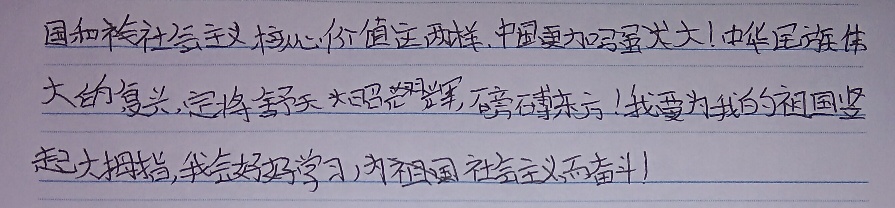 国和谐社会主义核心价值这两样,中国更加强大!中华民族伟
大的复兴,定将舒天昭辉,磅礴东方!我要为我的祖国竖
起大拇指,我会好好学习,为祖国社会主义而奋斗!